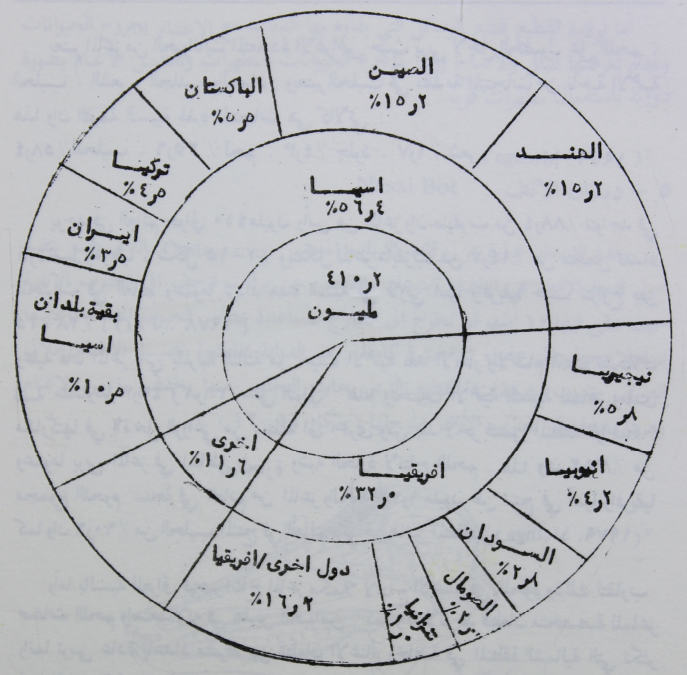 الصين
٢ر١٥%
الهند
٢ر١٥%
الباكستان
٥ر٥%
تركيا
٥ر٤%
ايران
٥ر٣%
بقية بلدان
اسيا
٥ر١٠%
اسيا
٤ر٥٦%
٢ر٤١٠
مليون
نيجيريا
٨ر٥%
اثيوبيا
٢ر٤%
السودان
٨ر٢%
الصومال
تنزانيا
دول اخرى/افريقيا
٢ر١٦%
افريقيا
٠ر٣٢%
اخرى
٦ر١١%